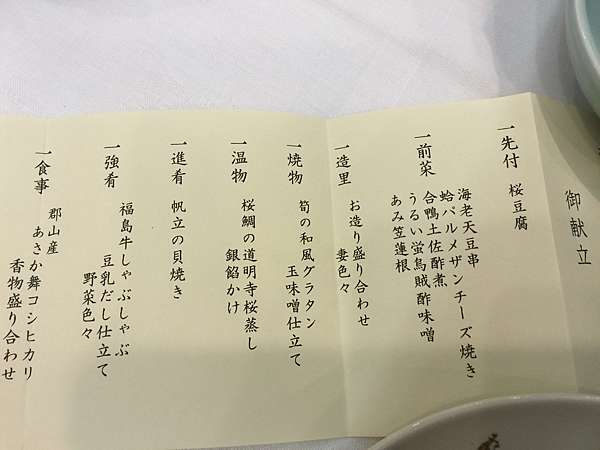 御献立
一先付 桜豆腐
一前菜 海老天豆串
蛤パルメザンチーズ焼き
合鴨土佐酢煮
うるい蛍烏賊酢味噌
あみ笠蓮根
一造里 お造り盛り合わせ
妻色々
一焼物 筍の和風グラタン
玉味噌仕立て
一温物 桜鯛の道明寺桜蒸し
銀餡かけ
一進肴 帆立の貝焼き
一強肴 福島牛しゃぶしゃぶ
豆乳だし仕立て
野菜色々
一食事 郡山産
あさか舞コシヒカリ
香物盛り合わせ